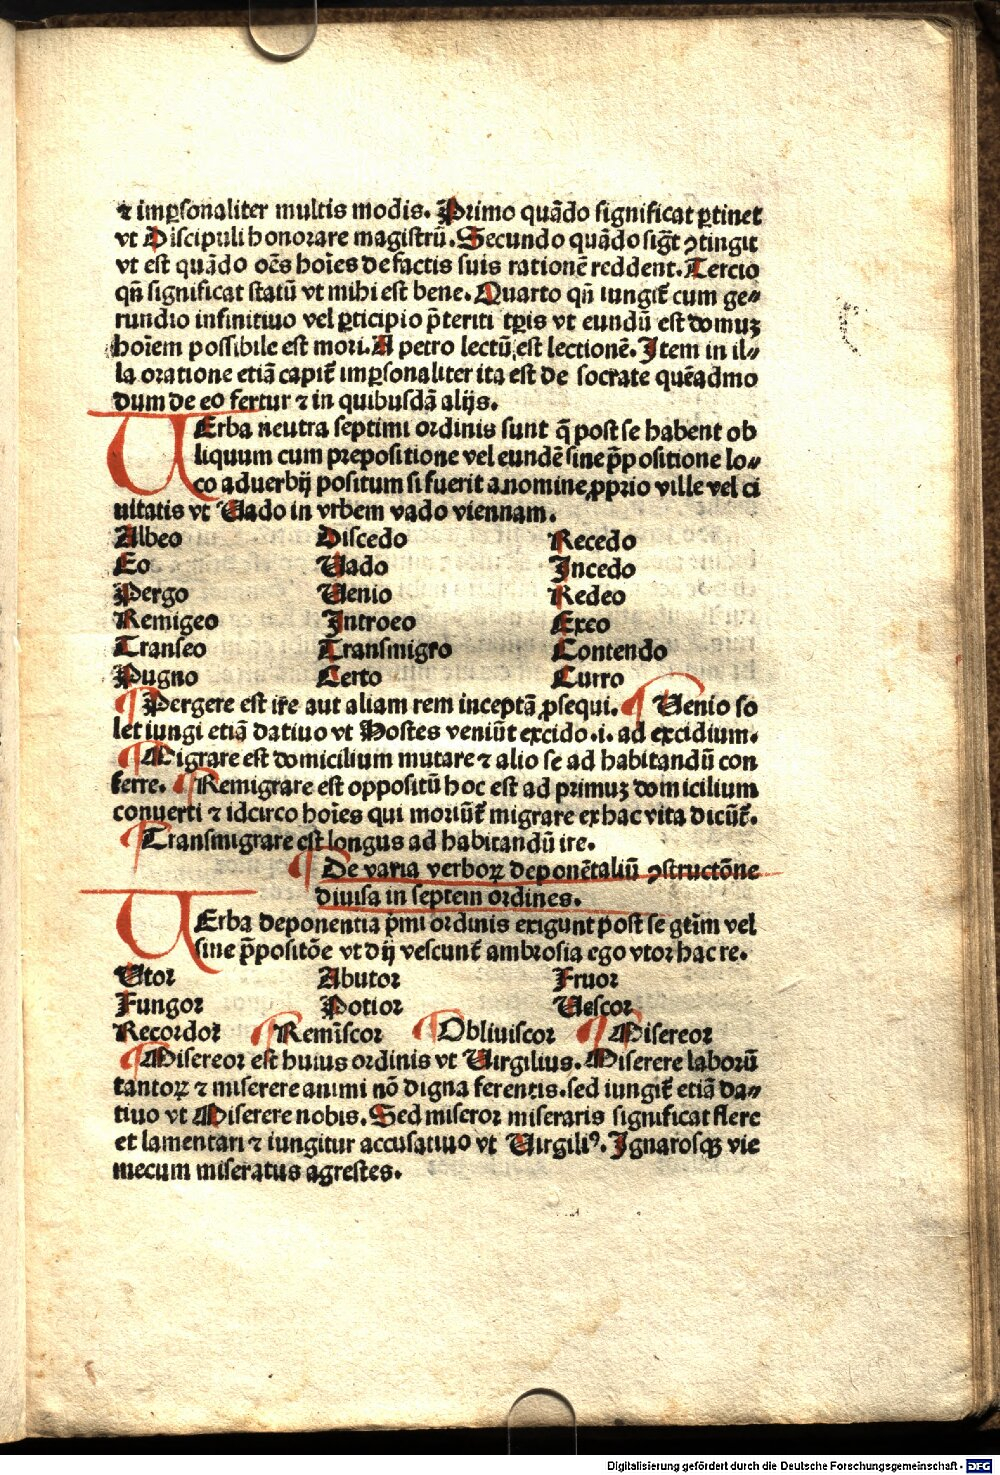 ⁊ imꝑsonaliter multis modis. Primo quādo significat ꝑtinet
vt Discipuli honorare magistrū. Secundo quādo sigt̄ ↄtingit
vt est quādo oēs hoīes de factis suis rationē reddent. Tercio
qn̄ significat statū vt mihi est bene. Quarto qn̄ iungit̄ cum ge⸗
rundio infinitiuo vel ꝑticipio p̄teriti tꝑis vt eundū est domuꝫ
hoīem possibile est mori. A petro lectū est lectionē. Item in il⸗
la oratione etiā capit̄ imꝑsonaliter ita est de socrate quēadmo
dum de eo fertur ⁊ in quibusdā alijs.
UErba neutra septimi ordinis sunt q̄ post se habent ob
liquum cum prepositione vel eundē sine p̄positione lo⸗
co aduerbij positum si fuerit a nomine ꝓprio ville vel ci
uitatis vt Uado in vrbem vado viennam.
Albeo Discedo Recedo
Eo Uado Incedo
Pergo Uenio Redeo
Remigeo Introeo Exeo
Transeo Transmigro Contendo
Pugno Certo Curro
Pergere est ire aut aliam rem inceptā ꝓsequi. Uenio so
let iungi etiā datiuo vt Hostes veniūt excido .i. ad excidium.
Migrare est domicilium mutare ⁊ alio se ad habitandū con
ferre. Remigrare est oppositū hoc est ad primuꝫ domicilium
conuerti ⁊ idcirco hoīes qui moriūt̄ migrare ex hac vita dicūt̄.
Transmigrare est longus ad habitandū ire.
De varia verboꝝ deponētaliū ↄstructōne
diuisa in septem ordines.
UErba deponentia p̄mi ordinis exigunt post se gtīm vel
sine p̄positōe vt dij vescunt̄ ambrosia ego vtor hac re.
Utor Abutor Fruor
Fungor Potior Uescor
Recordor Remīscor Obliuiscor Misereor
Misereor est huius ordinis vt Uirgilius. Miserere laborū
tantoꝝ ⁊ miserere animi nō digna ferentis. sed iungit̄ etiā da⸗
tiuo vt Miserere nobis. Sed miseror miseraris significat flere
et lamentari ⁊ iungitur accusatiuo vt Uirgiliꝰ. Ignarosqꝫ vie
mecum miseratus agrestes.
Digitalisierung gefördert durch die Deutsche Forschungsgemeinschaft - DFG